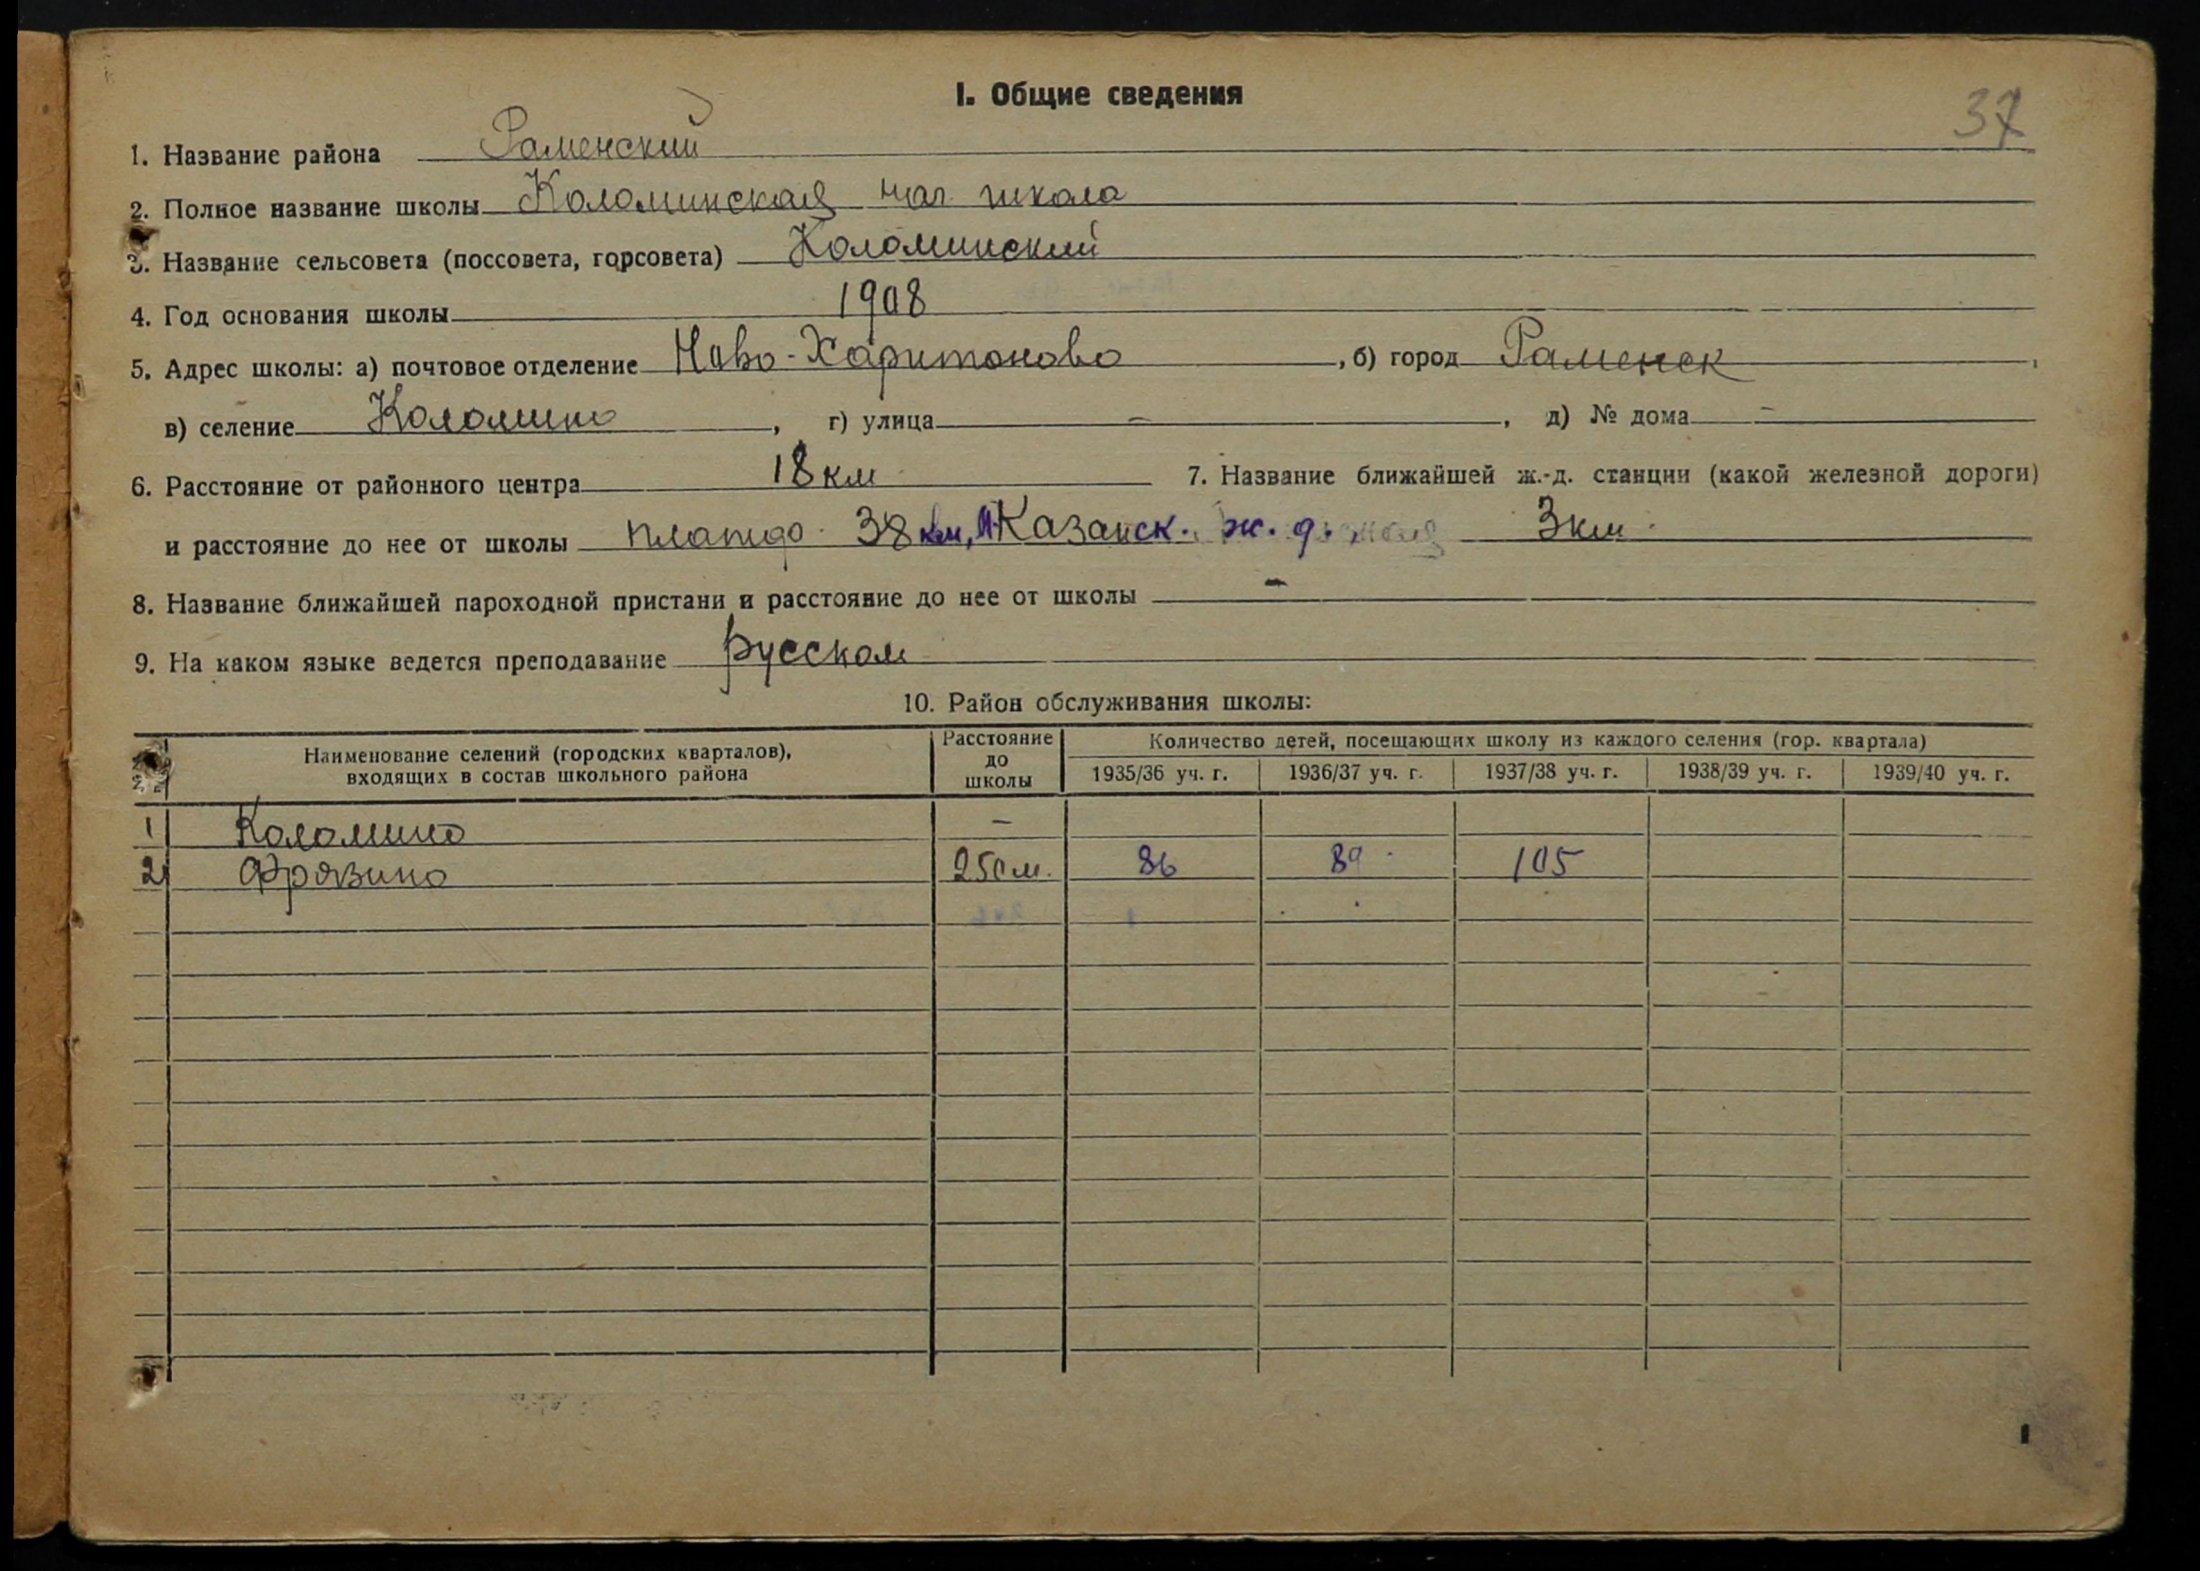 I. Общие сведения
37
1. Название района Раменский
2. Полное название школы Коломинская нач. школа
3. Название сельсовета (поссовета, горсовета) Коломинский
4. Год основания школы 1908
5. Адрес школы: а) почтовое отделение Ново-Харитоново, б) город Раменск,
в) селение Коломино, г) улица –, д) № дома –
6. Расстояние от районного центра 18 км 7. Название ближайшей ж.-д. станции (какой железной дороги)
и расстояние до нее от школы 38 км, Казанск. ж. д. 3 км.
8. Название ближайшей пароходной пристани и расстояние до нее от школы –
9. На каком языке ведется преподавание русском
10. Район обслуживания школы:
Наименование селений (городских кварталов), входящих в состав школьного района Расстояние до школы Количество детей, посещающих школу из каждого селения (гор. квартала)
1935/36 уч. г. 1936/37 уч. г. 1937/38 уч. г. 1938/39 уч. г. 1939/40 уч. г.
1 Коломино –
2 Фрязино 250 м. 86 89 105
1